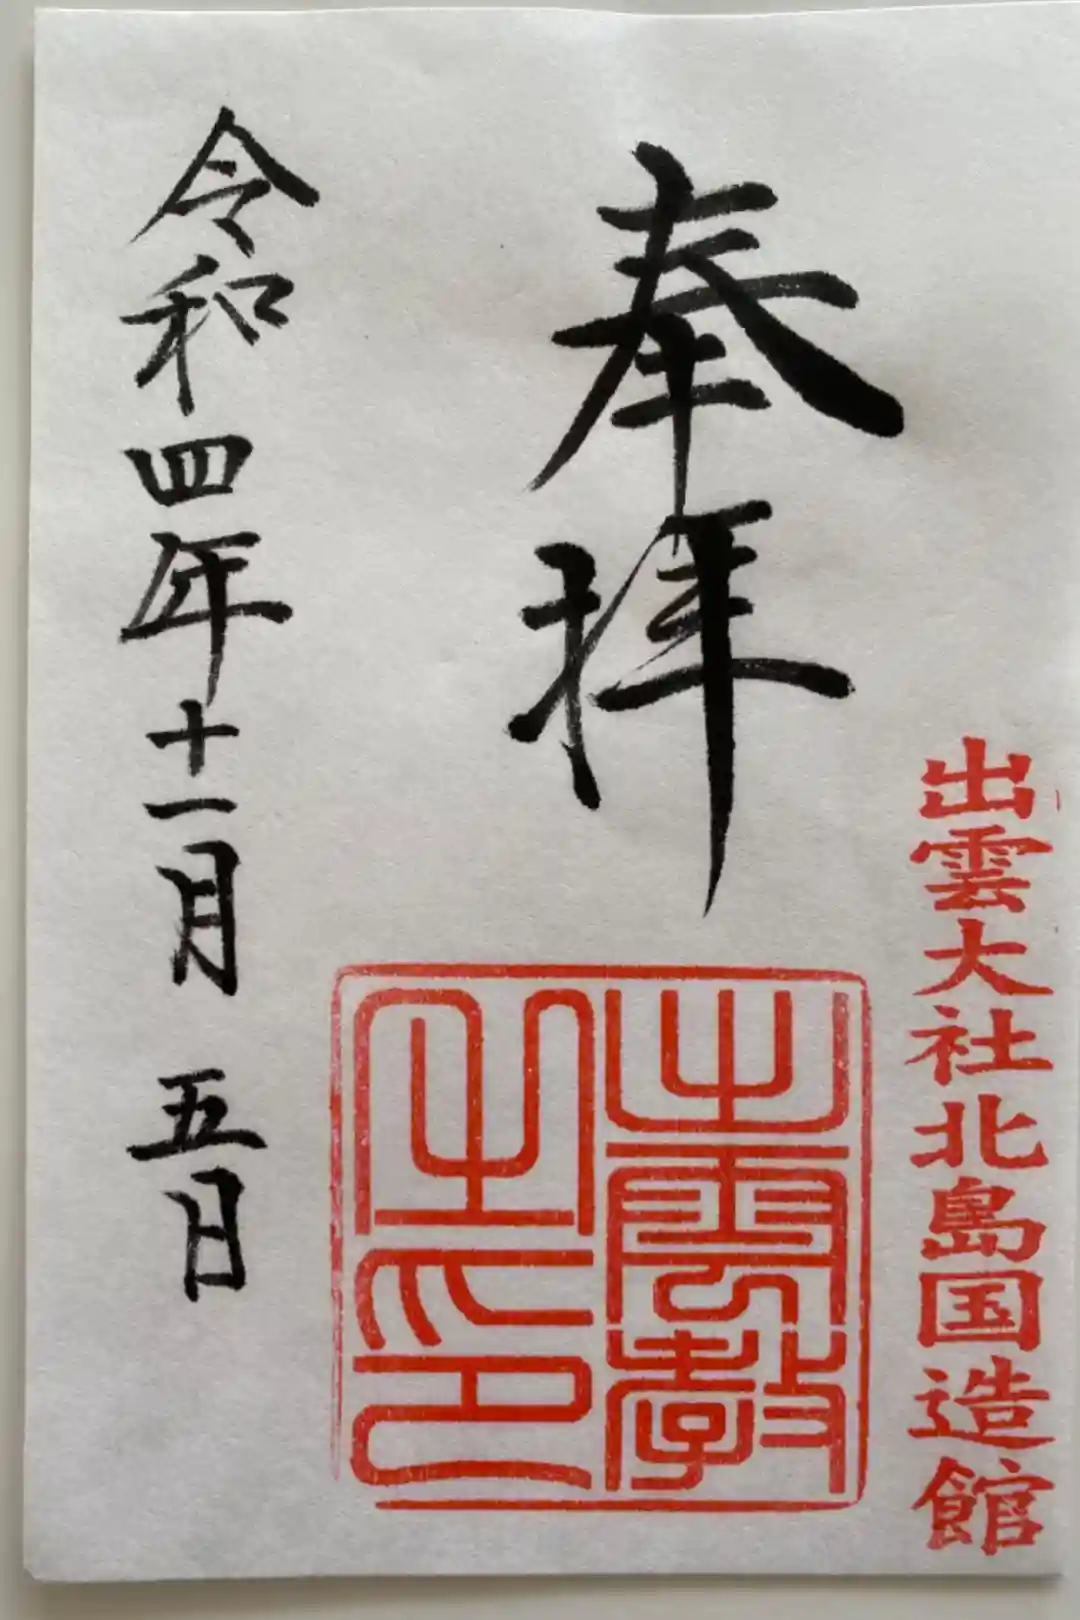 奉拝
出雲大社北島国造館
出雲教
之印
令和四年十一月五日